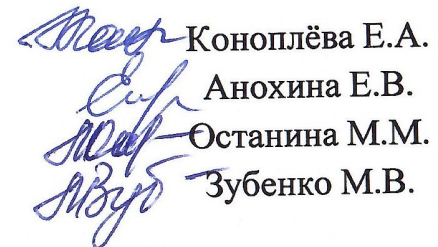 Коноплёва Е.А.
Анохина Е.В.
Останина М.М.
Зубенко М.В.